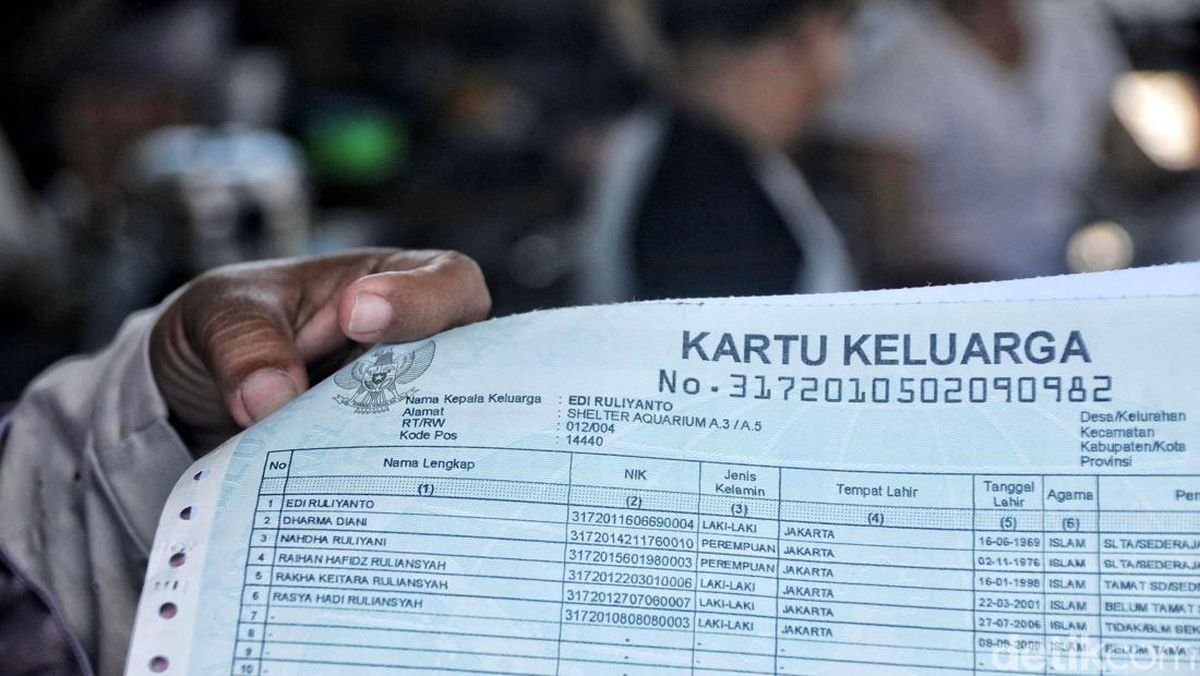 KARTU KELUARGA
No. 3172010502090982
Nama Kepala Keluarga : EDI RULIYANTO
Alamat : SHELTER AQUARIUM A.3 / A.5
RT/RW : 012/004
Kode Pos : 14440
Desa/Kelurahan
Kecamatan
Kabupaten/Kota
Provinsi
No Nama Lengkap NIK Jenis Kelamin Tempat Lahir Tanggal Lahir Agama
(1) (2) (3) (4) (5) (6)
1 EDI RULIYANTO 3172011606690004 LAKI-LAKI JAKARTA 16-06-1969 ISLAM SLTA/SEDERAJA
2 DHARMA DIANI 3172014211760010 PEREMPUAN JAKARTA 02-11-1976 ISLAM SLTA/SEDERAJA
3 NAHDHA RULIYANI 3172015601980003 PEREMPUAN JAKARTA 16-01-1998 ISLAM TAMAT SD/SEDERA
4 RAIHAN HAFIDZ RULIANSYAH 3172012203010006 LAKI-LAKI JAKARTA 22-03-2001 ISLAM BELUM TAMAT
5 RAKHA KEITARA RULIANSYAH 3172012707060007 LAKI-LAKI JAKARTA 27-07-2006 ISLAM TIDAK/BLM SEK
6 RASYA HADI RULIANSYAH 3172010808080003 LAKI-LAKI JAKARTA ISLAM BELUM TAMAT
7 - -
8 - -
9 - -
10
detikcom